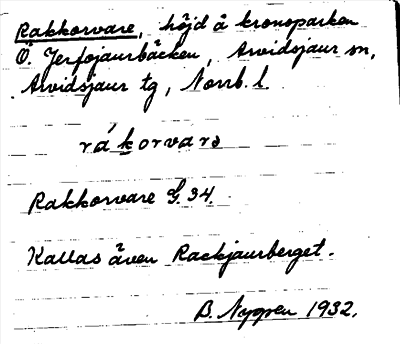 Rakkorvare, höjd å kronoparken
Ö. Jerfojaurbäcken, Arvidsjaur sn,
Arvidsjaur tg, Norrb. l.
rákorvarə
Rakkorvare G. 34.
Kallas även Rackjaurberget.
B. Nygren 1932.